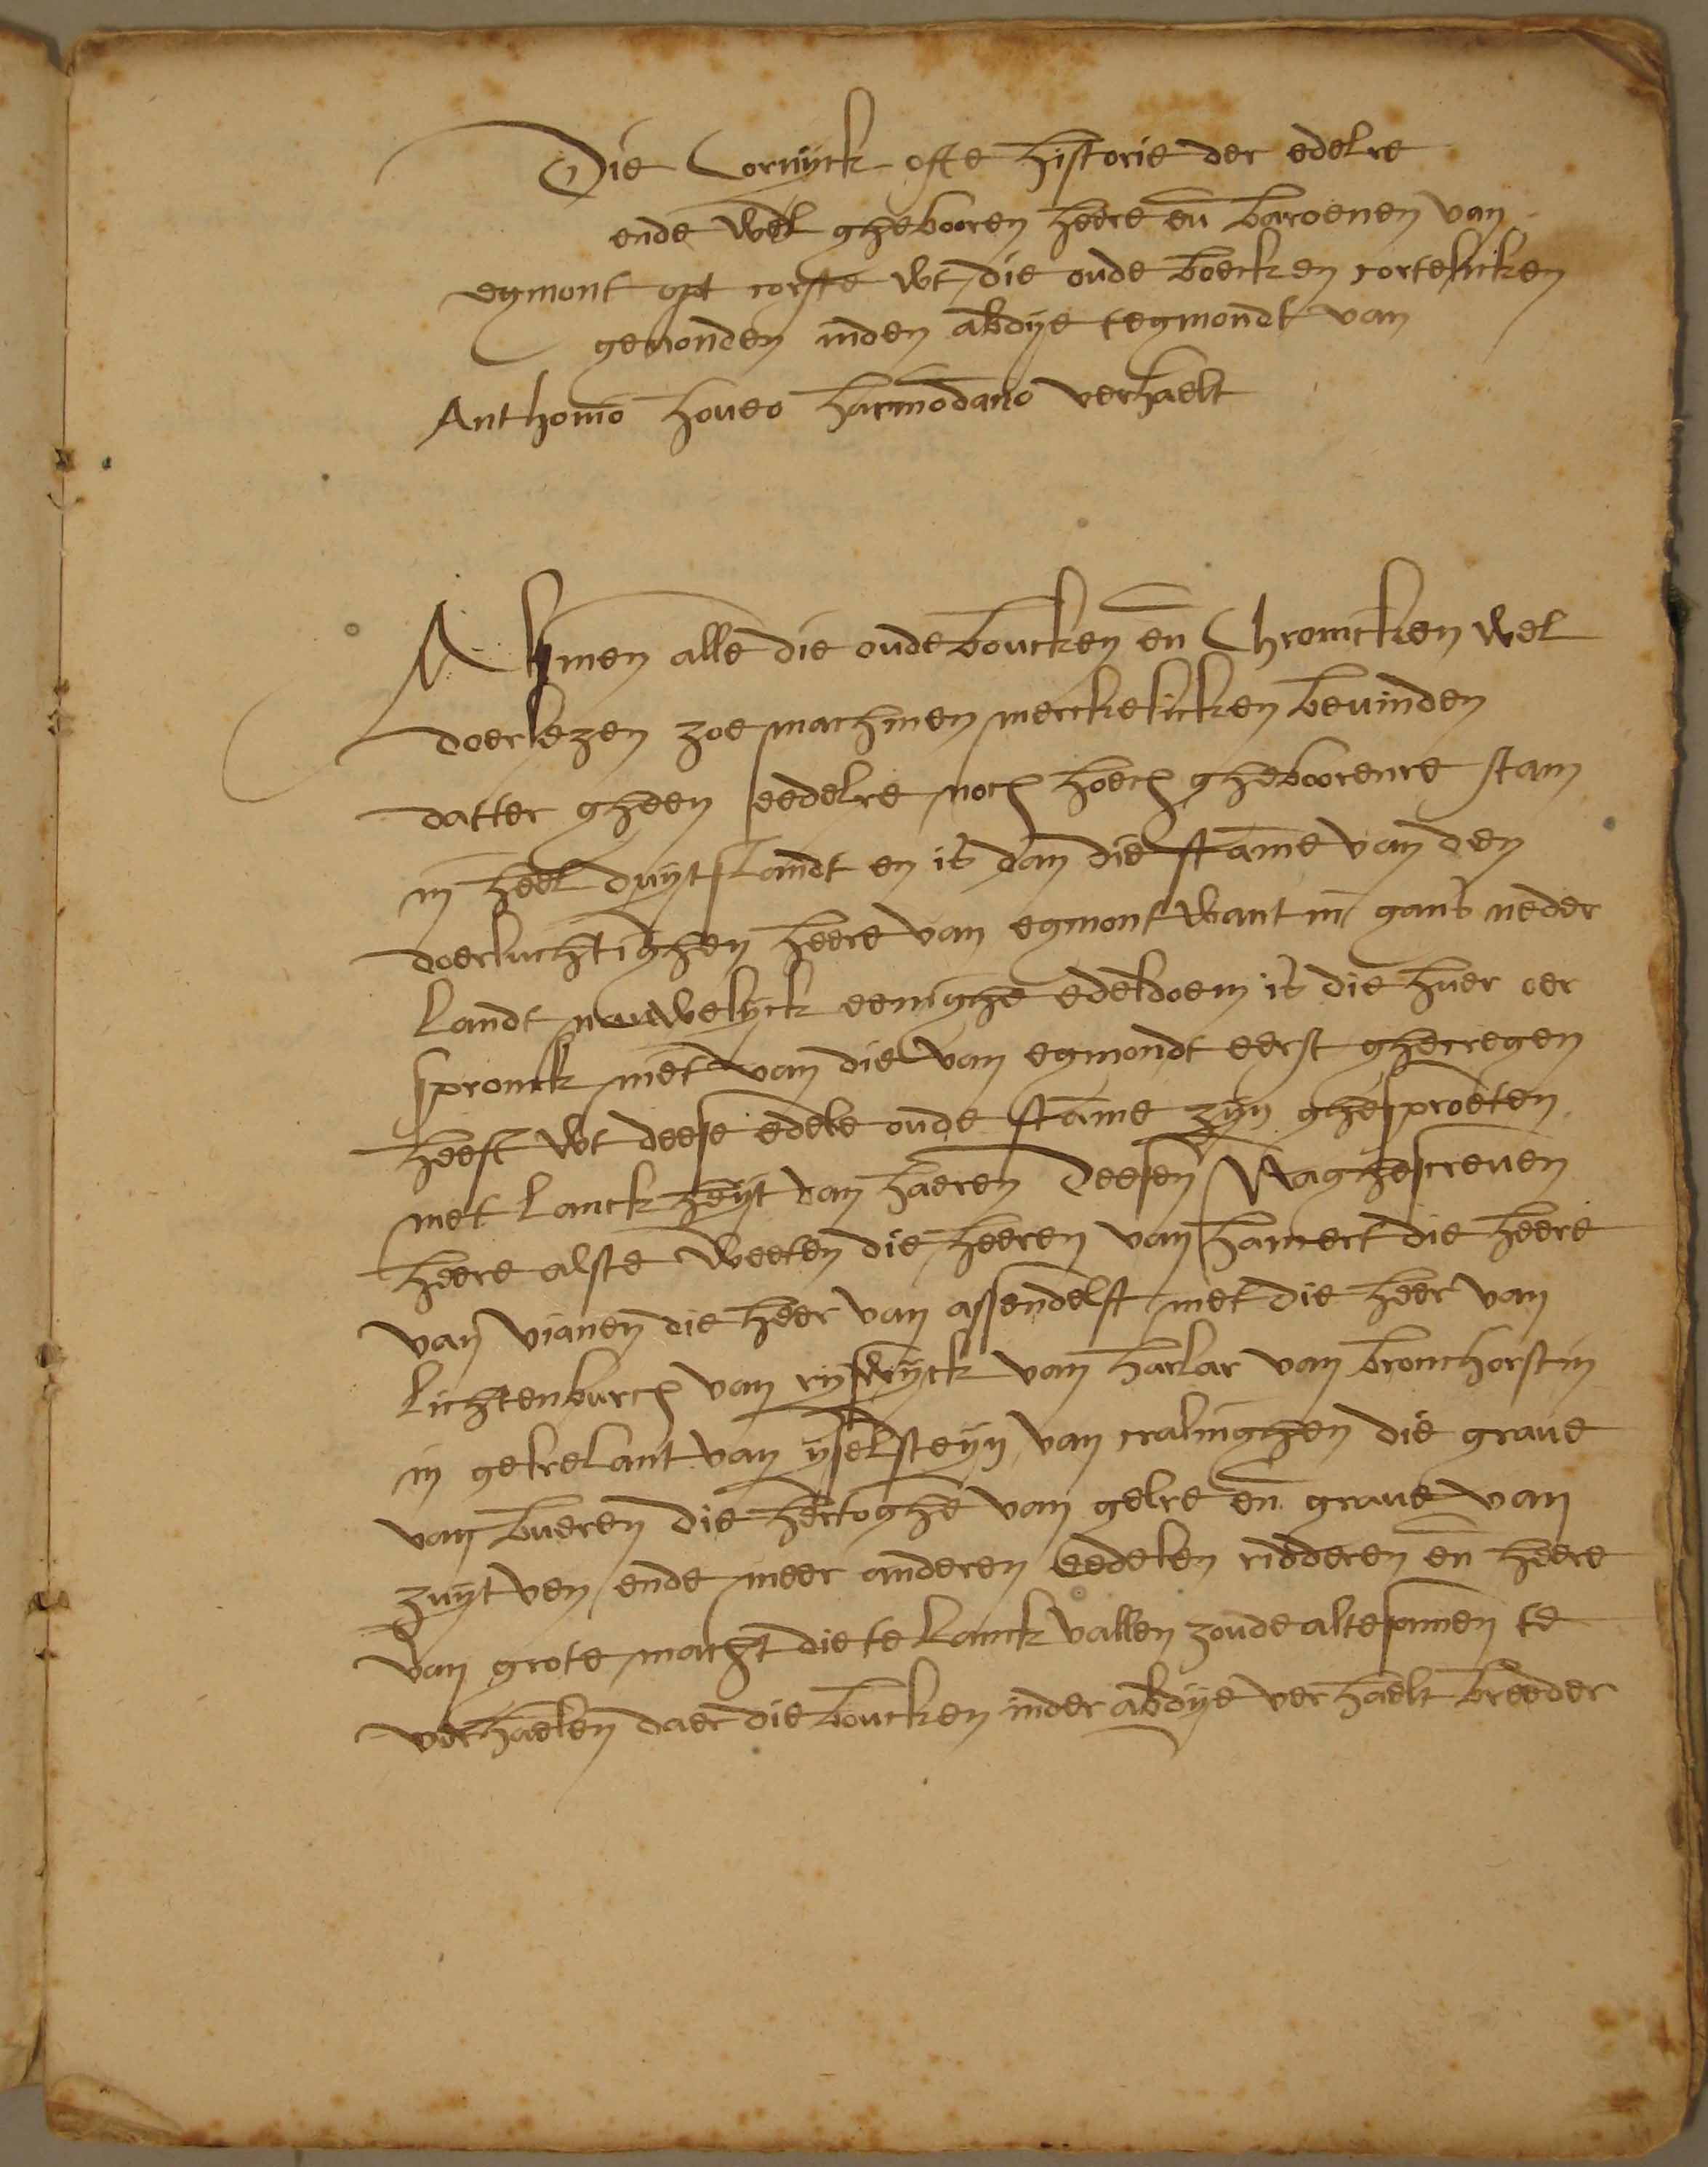 Die Cornijck ofte historie der edelre
ende wel ghebooren heere en̄ baroenen van
egmont opt corste wt die oude boecken cortelicken
gevonden inden abdije tegmondt van
Anthonio houeo harmodano verhaelt
Als men alle die oude boucken en̄ Chronicken wel
doerlezen zoe machmen merckelicken beuinden
datter gheen eedelre noch hoech gheboorenre stam
in heel duijtslandt en is dan die stam̄e van den
doerluchtighen heere van egmont want in gans neder
landt nauwelijck eenighe edeldoem is die huer oer
spronck niet van die van egmondt eerst ghecregen
heeft wt deese edele oude stam̄e zijn ghesproeten
met lanckheijt van haeren deesen naghescreuen
heere alste weeten die heeren van hamert die heere
van vianen die heer van assendelft met die heer van
lichtenburch van rijswijck van harlar van bronchorst in
in gelrelant van ijselsteijn van cralinghen die graue
van bueren die hertoghe van gelre en̄ graue van
zuijtven ende meer anderen eedelen ridderen en̄ heere
van grote macht die te lanck vallen zoude altesamen te
verhaelen daer die boucken inder abdije verhaelt breeder